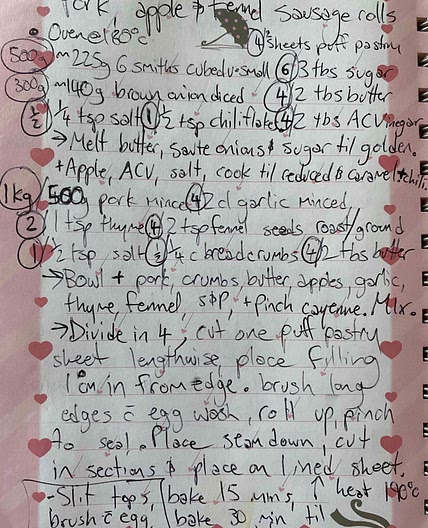 Pork, apple & fennel sausage rolls
• Oven @ 180°c ④ 2 sheets puff pastry
500g ~225g G smiths cubed v. small ⑥ 3 tbs sugar
300g ~140g brown onion diced ④ 2 tbs butter
½ ¼ tsp salt ① ½ tsp chili flake ④ 2 tbs ACVinegar
→ Melt butter, saute onions & sugar til golden.
+ Apple, ACV, salt, cook til reduced & caramel. + chili.
1kg / 500g pork mince ④ 2 cl garlic minced,
② 1 tsp thyme ④ 2 tsp fennel seeds roast/ground
① ½ tsp salt ½ ¼ c breadcrumbs ④ 2 tbs butter
→ Bowl + pork, crumbs, butter, apples, garlic,
thyme, fennel, s&p, + pinch cayenne. Mix.
→ Divide in 4, cut one puff pastry
sheet lengthwise, place filling
1cm in from edge. brush long
edges c̄ egg wash, roll up, pinch
to seal. Place seam down, cut
in sections & place on lined sheet.
- Slit tops, bake 15 mins, ↑ heat 190°c
brush c̄ egg, bake 30 min til